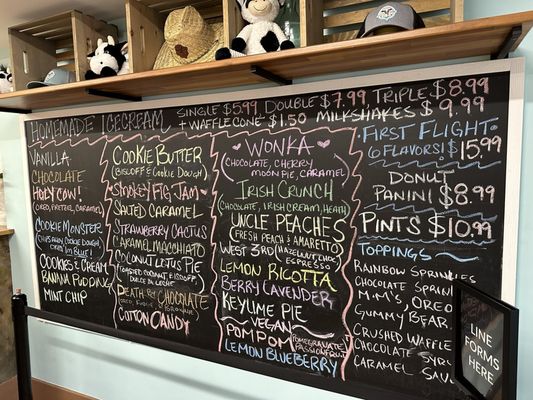 HOMEMADE ICECREAM
SINGLE $5.99 DOUBLE $7.99 TRIPLE $8.99
+ WAFFLE CONE $1.50 MILKSHAKES $9.99
VANILLA
CHOCOLATE
HOLY COW!
(OREO, PRETZEL, CARAMEL)
COOKIE MONSTER
IN BLUE!
COOKIES & CREAM
BANANA PUDDING
MINT CHIP
COOKIE BUTTER
(BISCOFF & COOKIE DOUGH)
SMOKEY FIG JAM
SALTED CARAMEL
STRAWBERRY CACTUS
CARAMEL MACCHIATO
COCONUT LETUS PIE
DEATH BY CHOCOLATE
COTTON CANDY
WONKA
(CHOCOLATE, CHERRY
MOON PIE, CARAMEL)
IRISH CRUNCH
(CHOCOLATE, IRISH CREAM, HEATH)
UNCLE PEACHES
(FRESH PEACH & AMARETTO)
WEST 3RD (HAZELNUT, CHOC, ESPRESSO
LEMON RICOTTA
BERRY LAVENDER
KEYLIME PIE
VEGAN
POMPOM (POMEGRANATE PASSIONFRUIT
LEMON BLUEBERRY
FIRST FLIGHT
6 FLAVORS! $15.99
DONUT
PANINI $8.99
PINTS $10.99
TOPPINGS
RAINBOW SPRINKLES
CHOCOLATE SPRIN
M+M'S, OREO
GUMMY BEAR
CRUSHED WAFFLE
CHOCOLATE SYR
CARAMEL SAU
LINE
FORMS
HERE